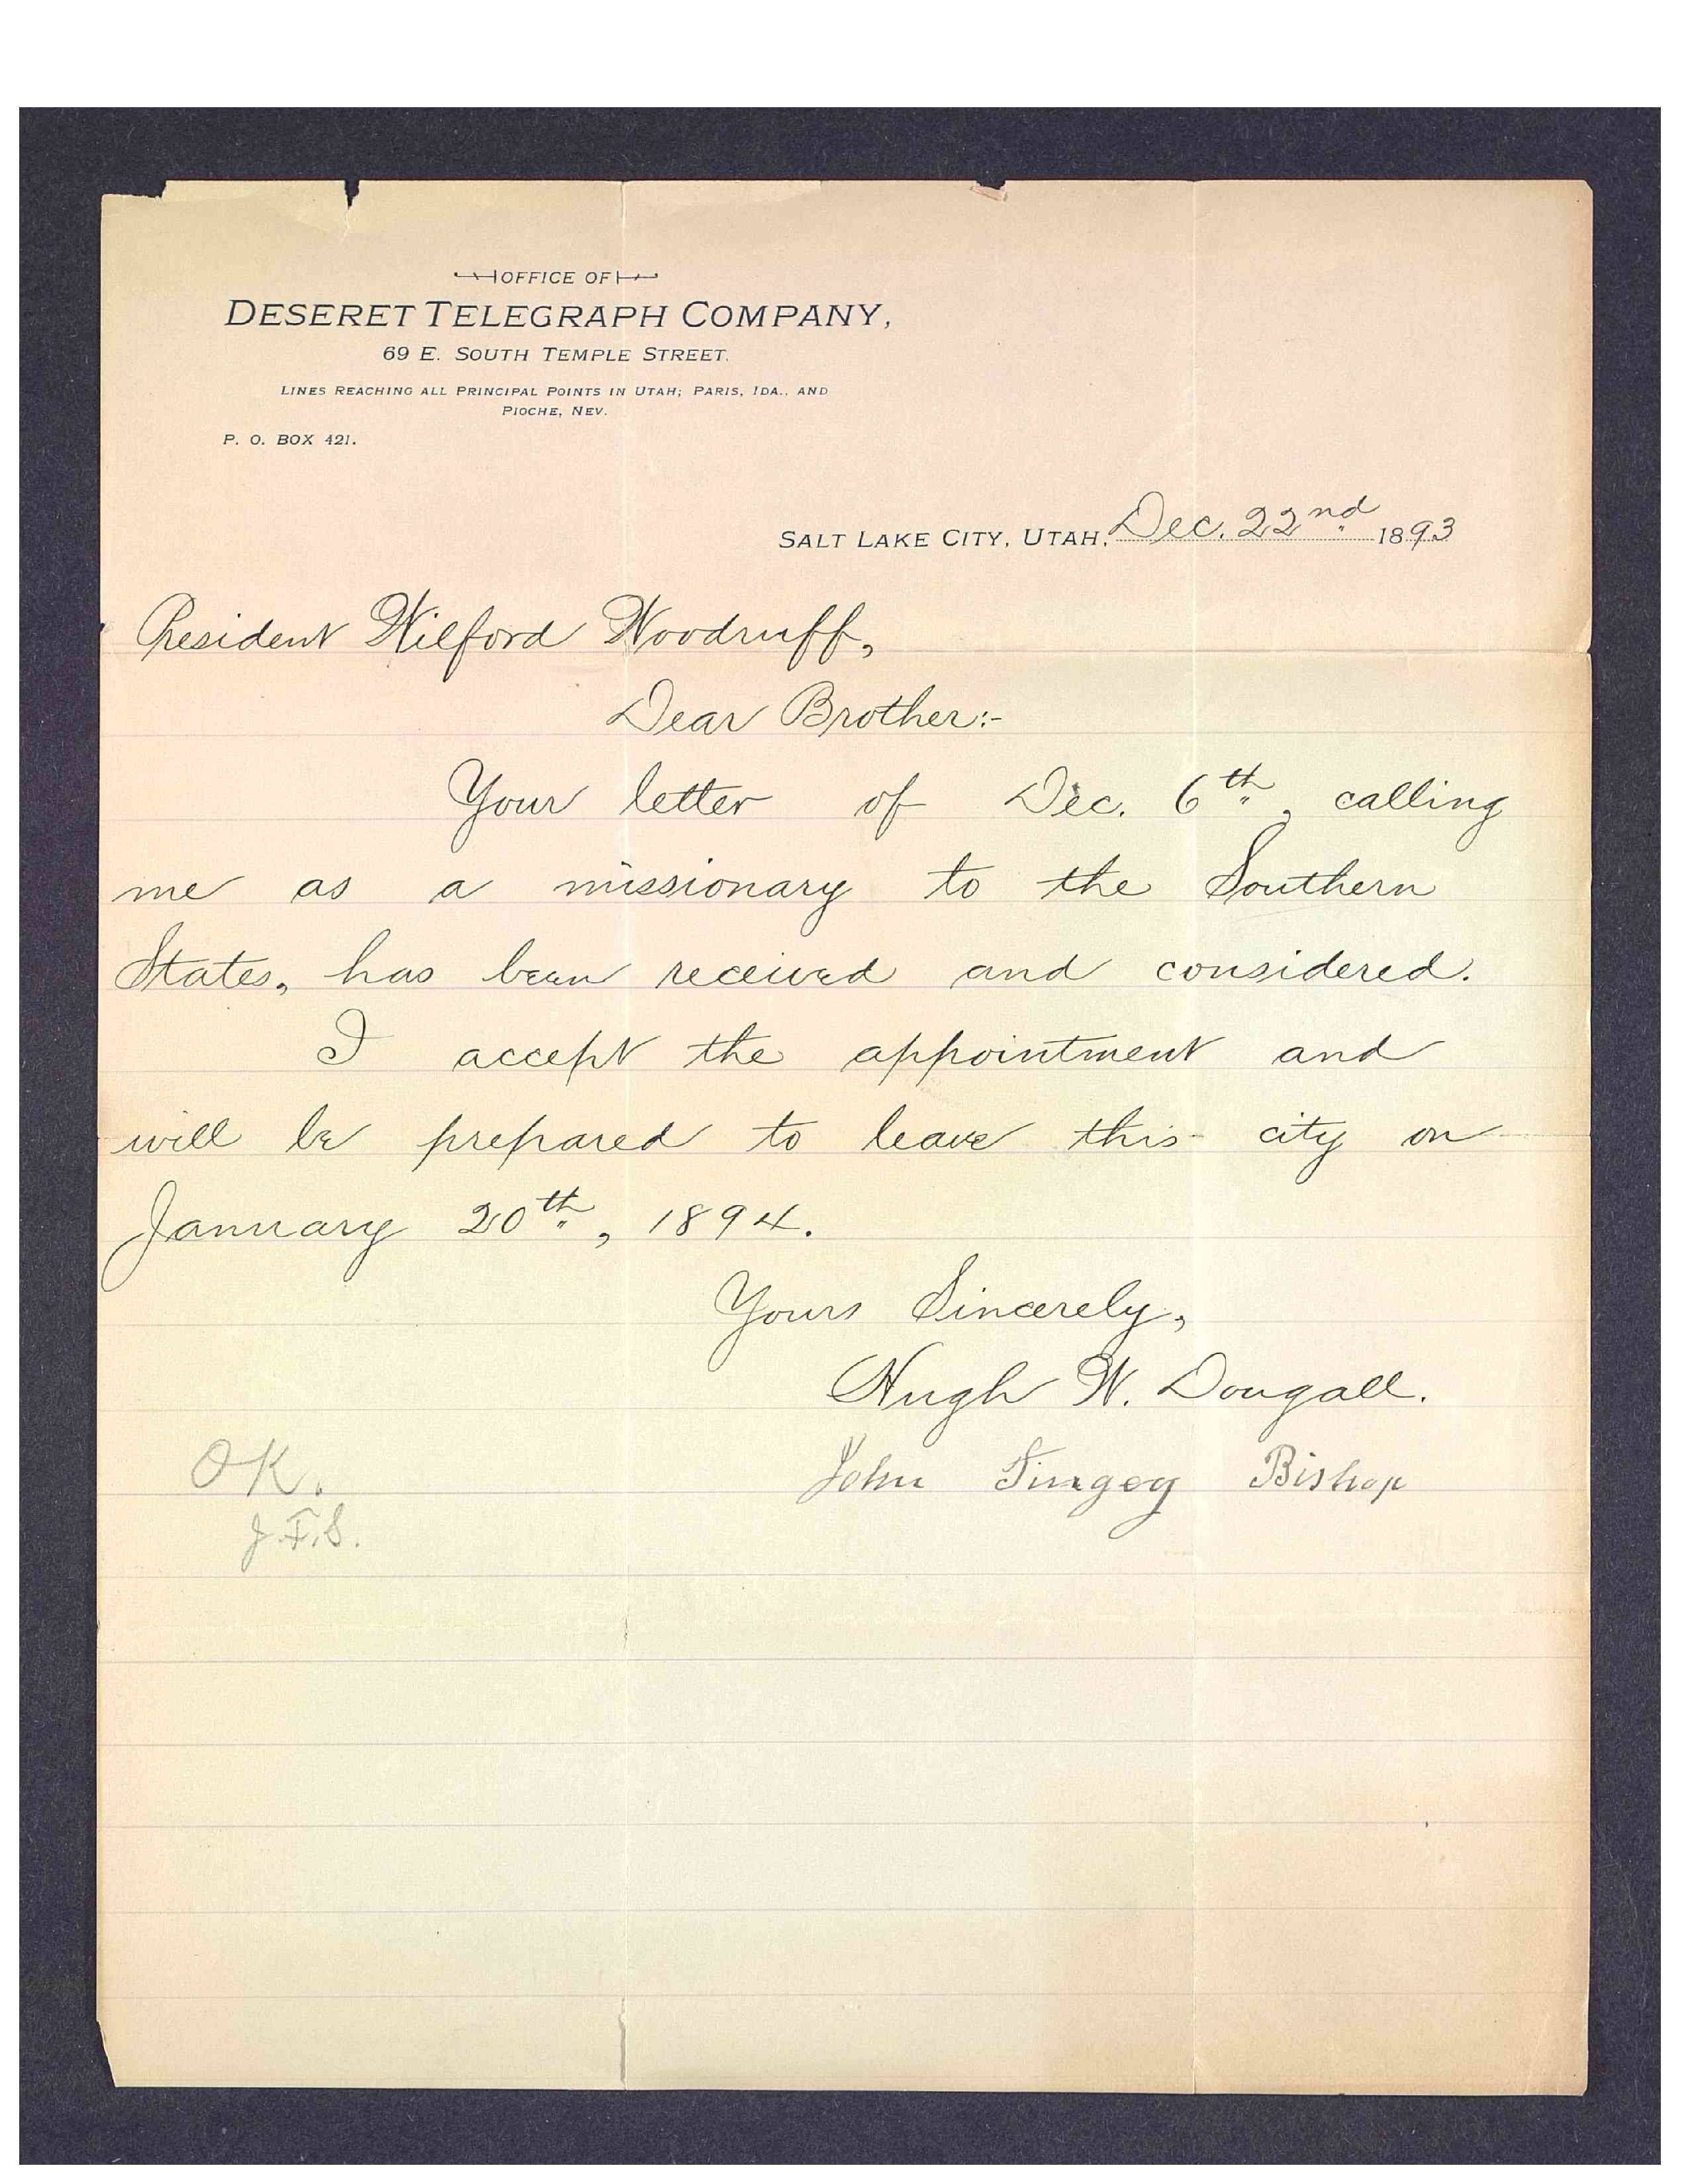 OFFICE OF
DESERET TELEGRAPH COMPANY,
69 E. SOUTH TEMPLE STREET.
LINES REACHING ALL PRINCIPAL POINTS IN UTAH; PARIS, IDA., AND
PIOCHE, NEV.
P. O. BOX 421.
SALT LAKE CITY, UTAH, Dec. 22nd 1893
President Wilford Woodruff,
Dear Brother:-
Your letter of Dec. 6th, calling
me as a missionary to the Southern
States, has been received and considered.
I accept the appointment and
will be prepared to leave this city on
January 20th, 1894.
Yours Sincerely,
Hugh W. Dougall.
John Tingey Bishop
OK.
J.F.S.